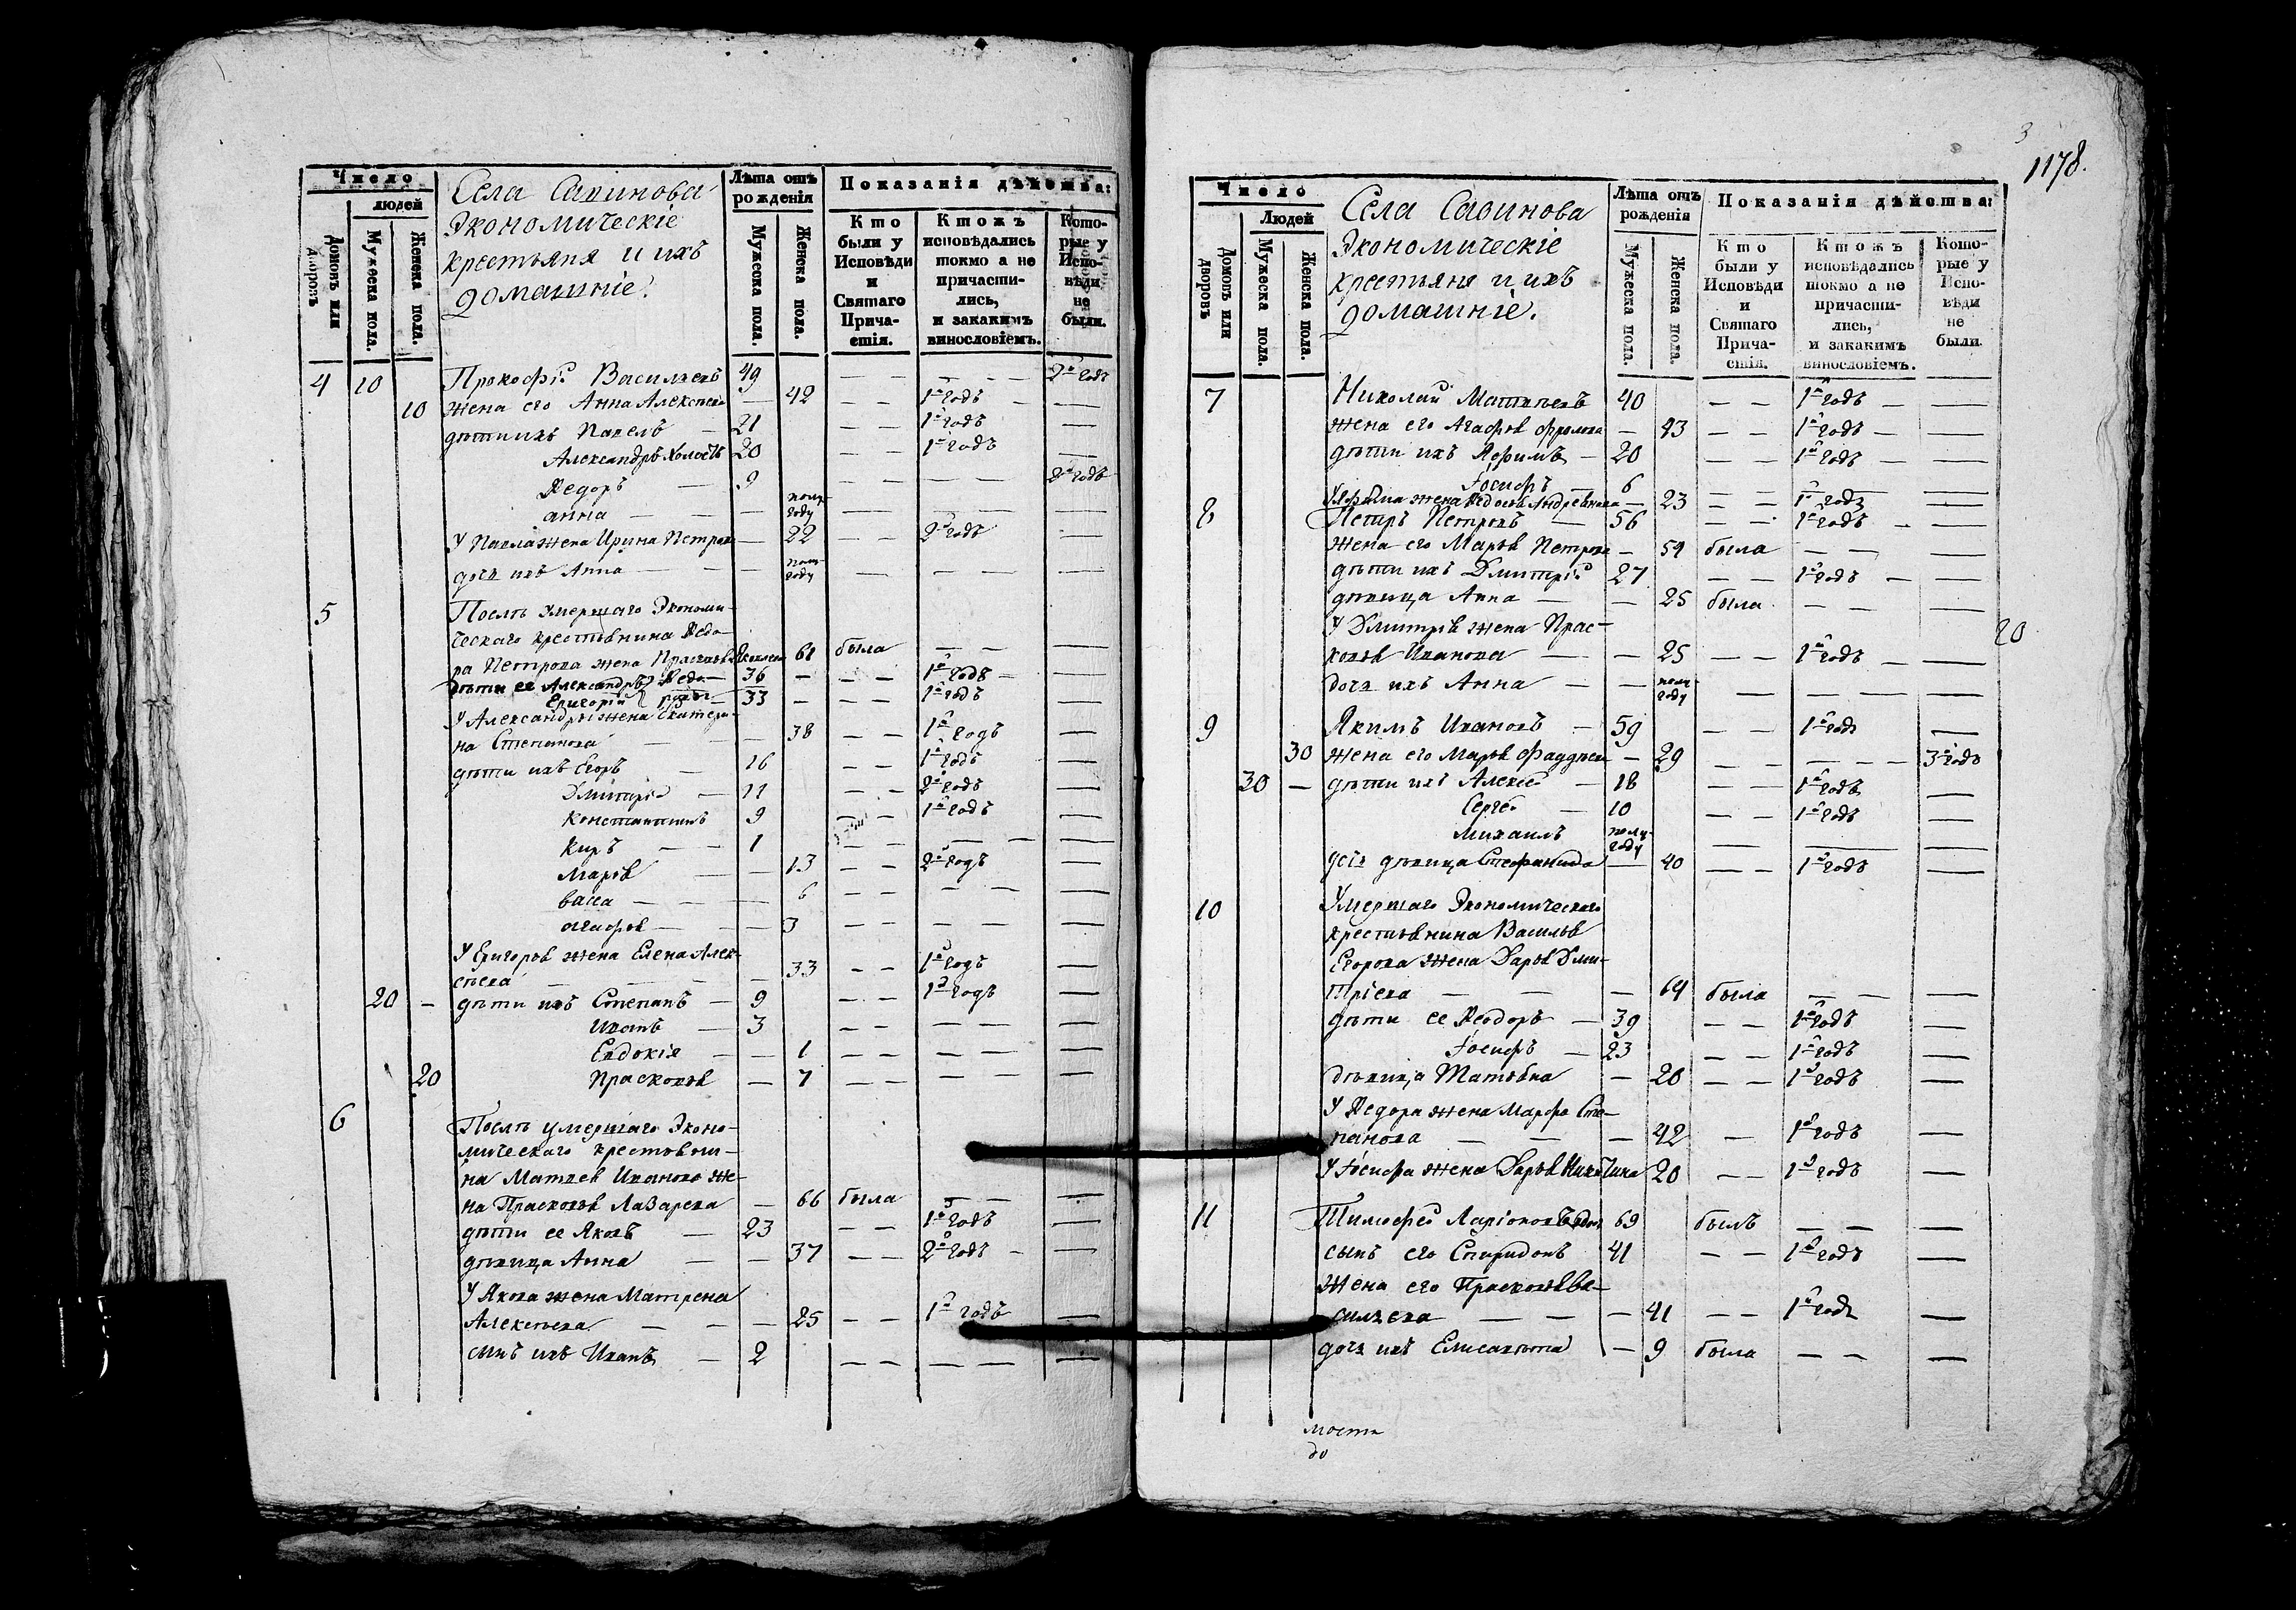 Число
людей
Домовъ или дворовъ
Мужеска пола.
Женска пола.
Села Савинова
Экономическіе
крестьяня и ихъ
домашніе.
Лѣта отъ рожденія
Мужеска пола.
Женска пола.
Показанія дѣйства:
Кто были у Исповѣди и Святаго Прича- стія.
Ктожъ исповѣдались токмо а не причасти- лись, и закакимъ винословіемъ.
Кото- рые у Испо- вѣди не были.
4 10 Прокофій Васильевъ 49 — — — — 2й годъ
10 жена его Анна Алексѣева — 42 — — 1й годъ — —
дѣти ихъ Павелъ — 21 — — 1й годъ —
Александръ холостъ 20 — — 1й годъ —
Ѳедоръ — 9 — — — — 2й годъ
анна — — — полу году — — — —
У Павла жена Ирина Петрова — 22 — — 2й годъ —
дочь ихъ Анна — — полу году — — — —
5 Послѣ умершаго Экономи-
ческаго крестьянина Ѳедо-
ра Петрова жена Прасковья Яковлева 61 была — — —
дѣти ее Александръ Ѳедо- 36 — — — 1й годъ — —
Григорій 33 — — — 1й годъ —
У Александры жена Екатери-
на Степанова — — 38 — — 1й годъ —
дѣти ихъ Егоръ — 16 — — 1й годъ —
Дмитрій — 11 — — 2й годъ —
Константинъ 9 — — 1й годъ —
Киръ — — 1 — — — — —
Марія — — 13 — — 2й годъ —
васса — — — 6 — — — — —
агафья — — — 3 — — — — —
У Григорья жена Елена Алек-
сѣева — — — 33 — — 1й годъ —
20 — дѣти ихъ Степанъ — 9 — — 1й годъ —
Иванъ — 3 — — — — —
Евдокія — — 1 — — — — —
20 Прасковья — 7 — — — — —
6 Послѣ умершаго Эконо-
мическаго крестьяни-
на Матвея Иванова же-
на Прасковья Лазарева — 66 была — — —
дѣти ее Яковъ — 23 — — 1й годъ —
дѣвица Анна — — 37 — — 2й годъ — —
У Якова жена Матрена
Алексѣева — — — 25 — — 1й годъ —
сынъ ихъ Иванъ — 2 — — — — —
3
1178.
Число
Людей
Домовъ или дворовъ
Мужеска пола.
Женска пола.
Села Савинова
Экономическіе
крестьяня и ихъ
домашніе.
Лѣта отъ рожденія
Мужеска пола.
Женска пола.
Показанія дѣйства:
Кто были у Исповѣди и Святаго Прича- стія.
Ктожъ исповѣдались токмо а не причасти- лись, и закакимъ винословіемъ.
Кото- рые у Испо- вѣди не были.
7 Николай Матвѣевъ 40 — — 1й годъ — —
жена его Агафья Фролова — 43 — — 1й годъ — —
дѣти ихъ Яфимъ — 20 — — 1й годъ — —
Іосифъ — 6 — — — —
У Яфима жена Ѳедосья Андреевна — 23 — — 1й годъ —
8 Петръ Петровъ — 56 — — 1й годъ — —
жена его Марья Петрова — 59 была — — —
дѣти ихъ Дмитрій 27 — — 1й годъ — —
дѣвица Анна — — 25 была — — —
У Дмитрія жена Прас-
20
ковья Иванова — — 25 — — 1й годъ — —
дочь ихъ Анна — — полу году — — — —
9 Якимъ Ивановъ — 59 — — 1й годъ —
30 жена его Марья Фаддѣева — 29 — — — — — 3й годъ
30 — дѣти ихъ Алексѣй — 18 — — 1й годъ —
Сергей — 10 — — 1й годъ —
Михаилъ полу году — — —
дочь дѣвица Стефанида — 40 — — 1й годъ —
10 Умершаго Экономическаго
крестьянина Василья
Егорова жена Дарья Дми-
тріева — — — 64 была — — —
дѣти ее Ѳеодоръ — 39 — — 1й годъ —
Іосифъ — 23 — — 1й годъ —
дѣвица Татьяна — 20 — — 1й годъ —
У Ѳедора жена Марфа Сте-
панова — — — 42 — 1й годъ —
У Іосифа жена Дарья Никитина 20 — — 1й годъ —
11 Тимофей Ларіоновъ вдовъ 69 былъ — — —
сынъ его Спиридонъ 41 — — 1й годъ —
Жена его Прасковья Ва-
сильева — — — 41 — — 1й годъ —
дочь ихъ Елисавета — 9 была — — —